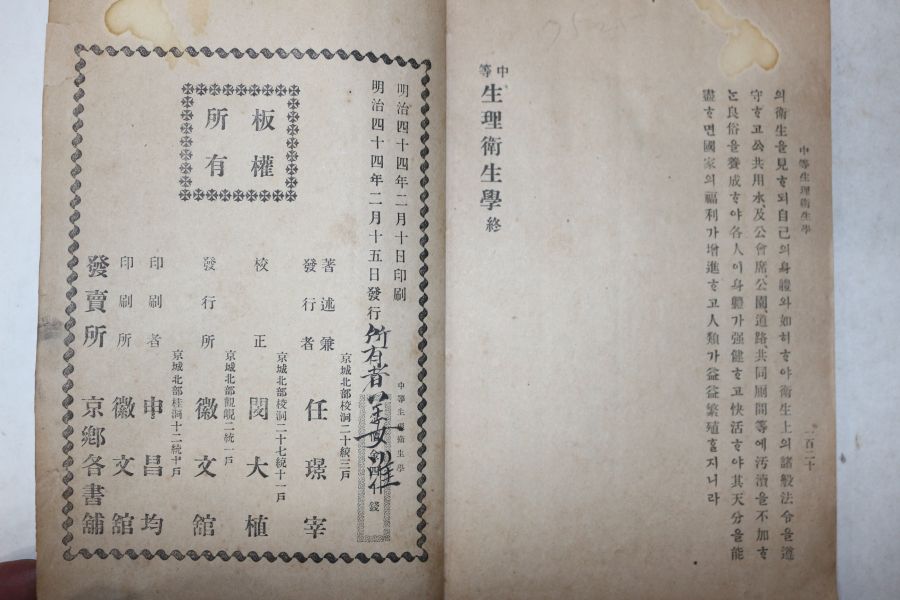 中等生理衛生學
一百二十
의衛生을見ᄒᆞ되自己의身體와如히ᄒᆞ야衛生上의諸般法令을遵
守ᄒᆞ고公共用水、及公會席、公園、道路、共同厠間等에汚瀆을不加ᄒᆞ
ᄂᆞᆫ良俗을養成ᄒᆞ야各人이身體가强健ᄒᆞ고快活ᄒᆞ야其天分을能
盡ᄒᆞ면國家의福利가增進ᄒᆞ고人類가益益繁殖ᄒᆞᆯ지니라
中等生理衛生學終
明治四十四年二月十日印刷
明治四十四年二月十五日發行
板權
所有
中等生理衛生學
所有者
著述兼
發行者
京城北部校洞二十統三戶
任璟宰
校正
京城北部校洞二十七統十一戶
閔大植
發行所
京城北部觀峴二統一戶
徽文館
印刷者
京城北部桂洞十二統十戶
申昌均
印刷所
徽文館
發賣所
京鄕各書舖